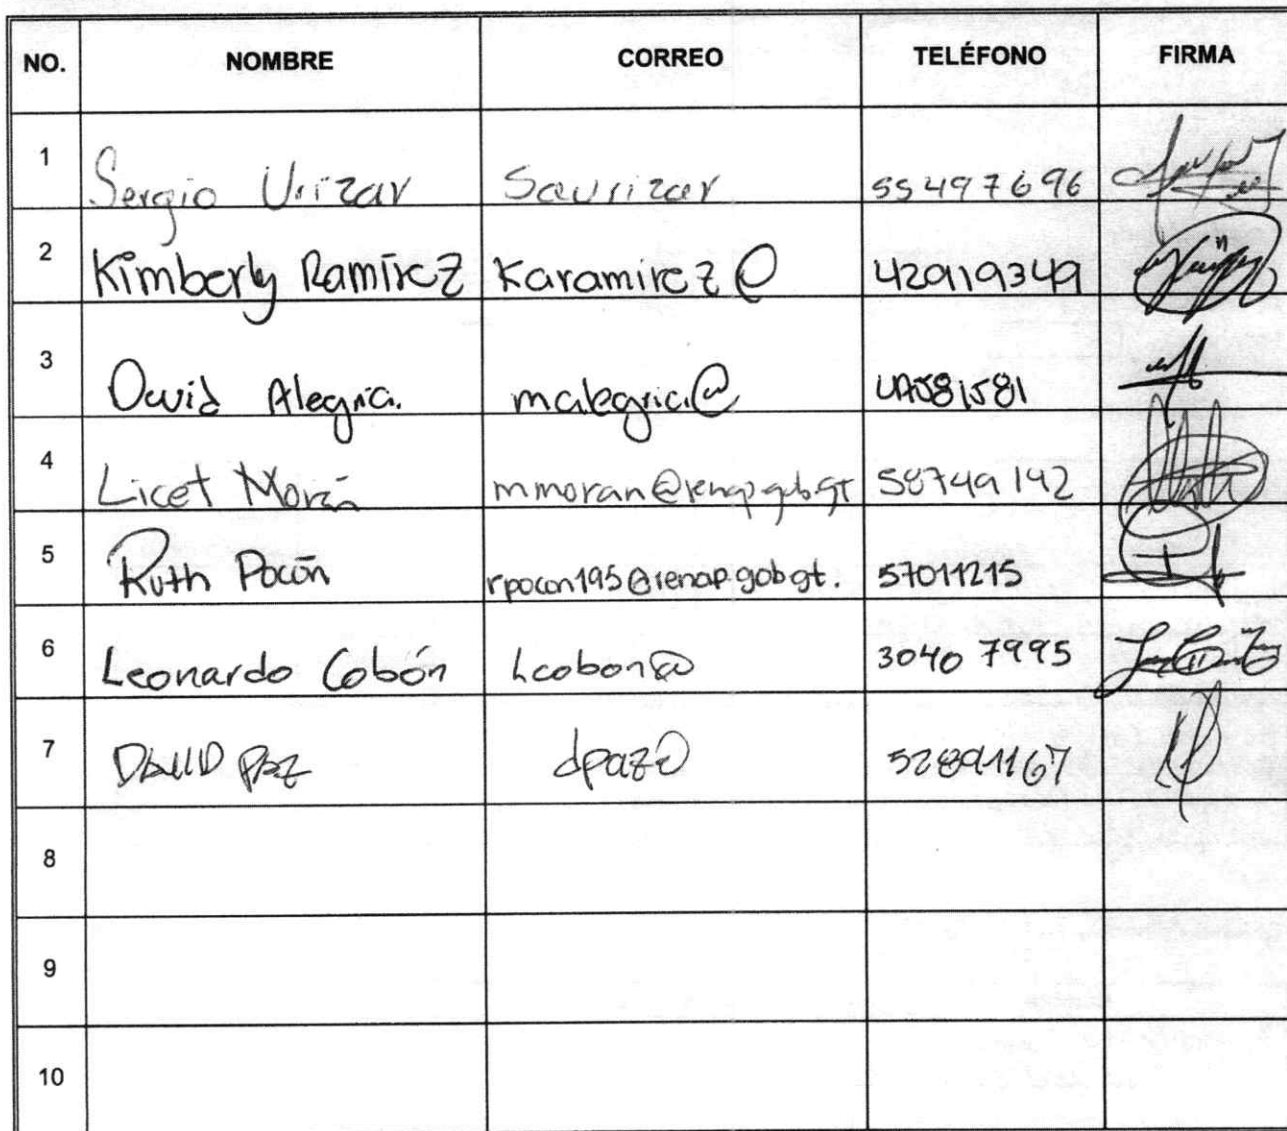 NO. NOMBRE CORREO TELÉFONO FIRMA
1 Sergio Urizar Saurizar 55497696
2 Kimberly Ramírez Karamirez@ 42919349
3 David Alegria. malegria@
4 Licet Morán mmoran@renap.gob.gt 58749142
5 Ruth Pocón rpocon195@renap.gob.gt. 57011215
6 Leonardo Cobón lcobon@ 3040 7995
7 DAVID PAZ dpaz@ 52891167
8
9
10